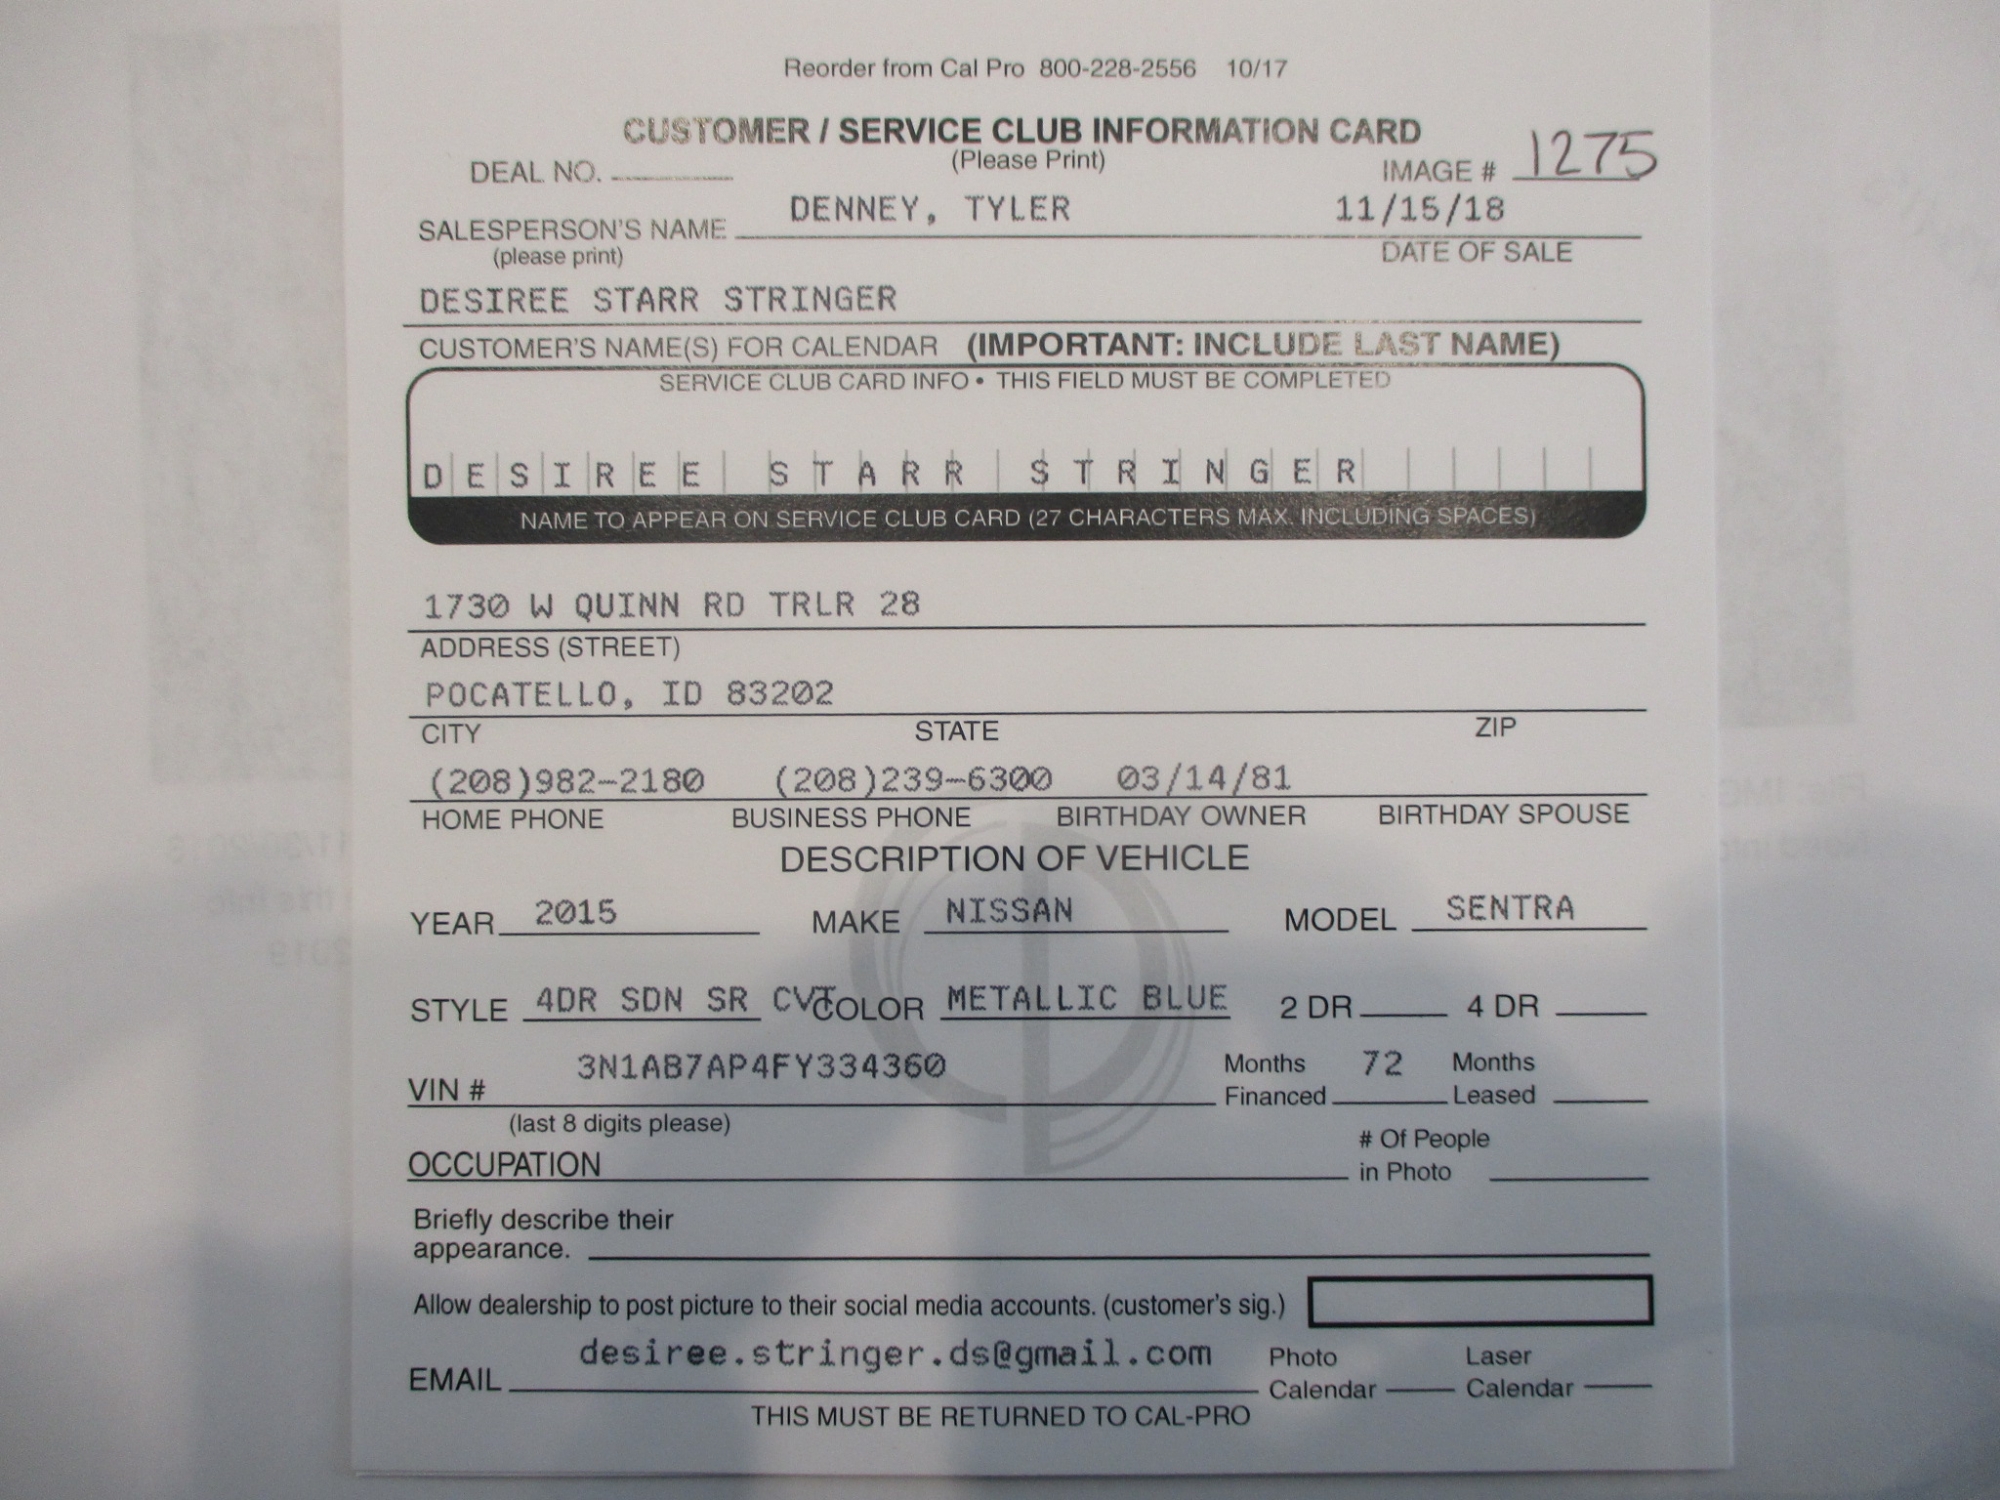 Reorder from Cal Pro 800-228-2556 10/17
CUSTOMER / SERVICE CLUB INFORMATION CARD
(Please Print)
DEAL NO. IMAGE # 1275
SALESPERSON'S NAME DENNEY, TYLER 11/15/18
(please print) DATE OF SALE
DESIREE STARR STRINGER
CUSTOMER'S NAME(S) FOR CALENDAR (IMPORTANT: INCLUDE LAST NAME)
SERVICE CLUB CARD INFO • THIS FIELD MUST BE COMPLETED
DESIREE STARR STRINGER
NAME TO APPEAR ON SERVICE CLUB CARD (27 CHARACTERS MAX. INCLUDING SPACES)
1730 W QUINN RD TRLR 28
ADDRESS (STREET)
POCATELLO, ID 83202
CITY STATE ZIP
(208)982-2180 (208)239-6300 03/14/81
HOME PHONE BUSINESS PHONE BIRTHDAY OWNER BIRTHDAY SPOUSE
DESCRIPTION OF VEHICLE
YEAR 2015 MAKE NISSAN MODEL SENTRA
STYLE 4DR SDN SR CVT COLOR METALLIC BLUE 2 DR 4 DR
VIN # 3N1AB7AP4FY334360 Months Financed 72 Months Leased
(last 8 digits please)
OCCUPATION # Of People in Photo
Briefly describe their
appearance.
Allow dealership to post picture to their social media accounts. (customer's sig.)
EMAIL desiree.stringer.ds@gmail.com Photo Calendar Laser Calendar
THIS MUST BE RETURNED TO CAL-PRO